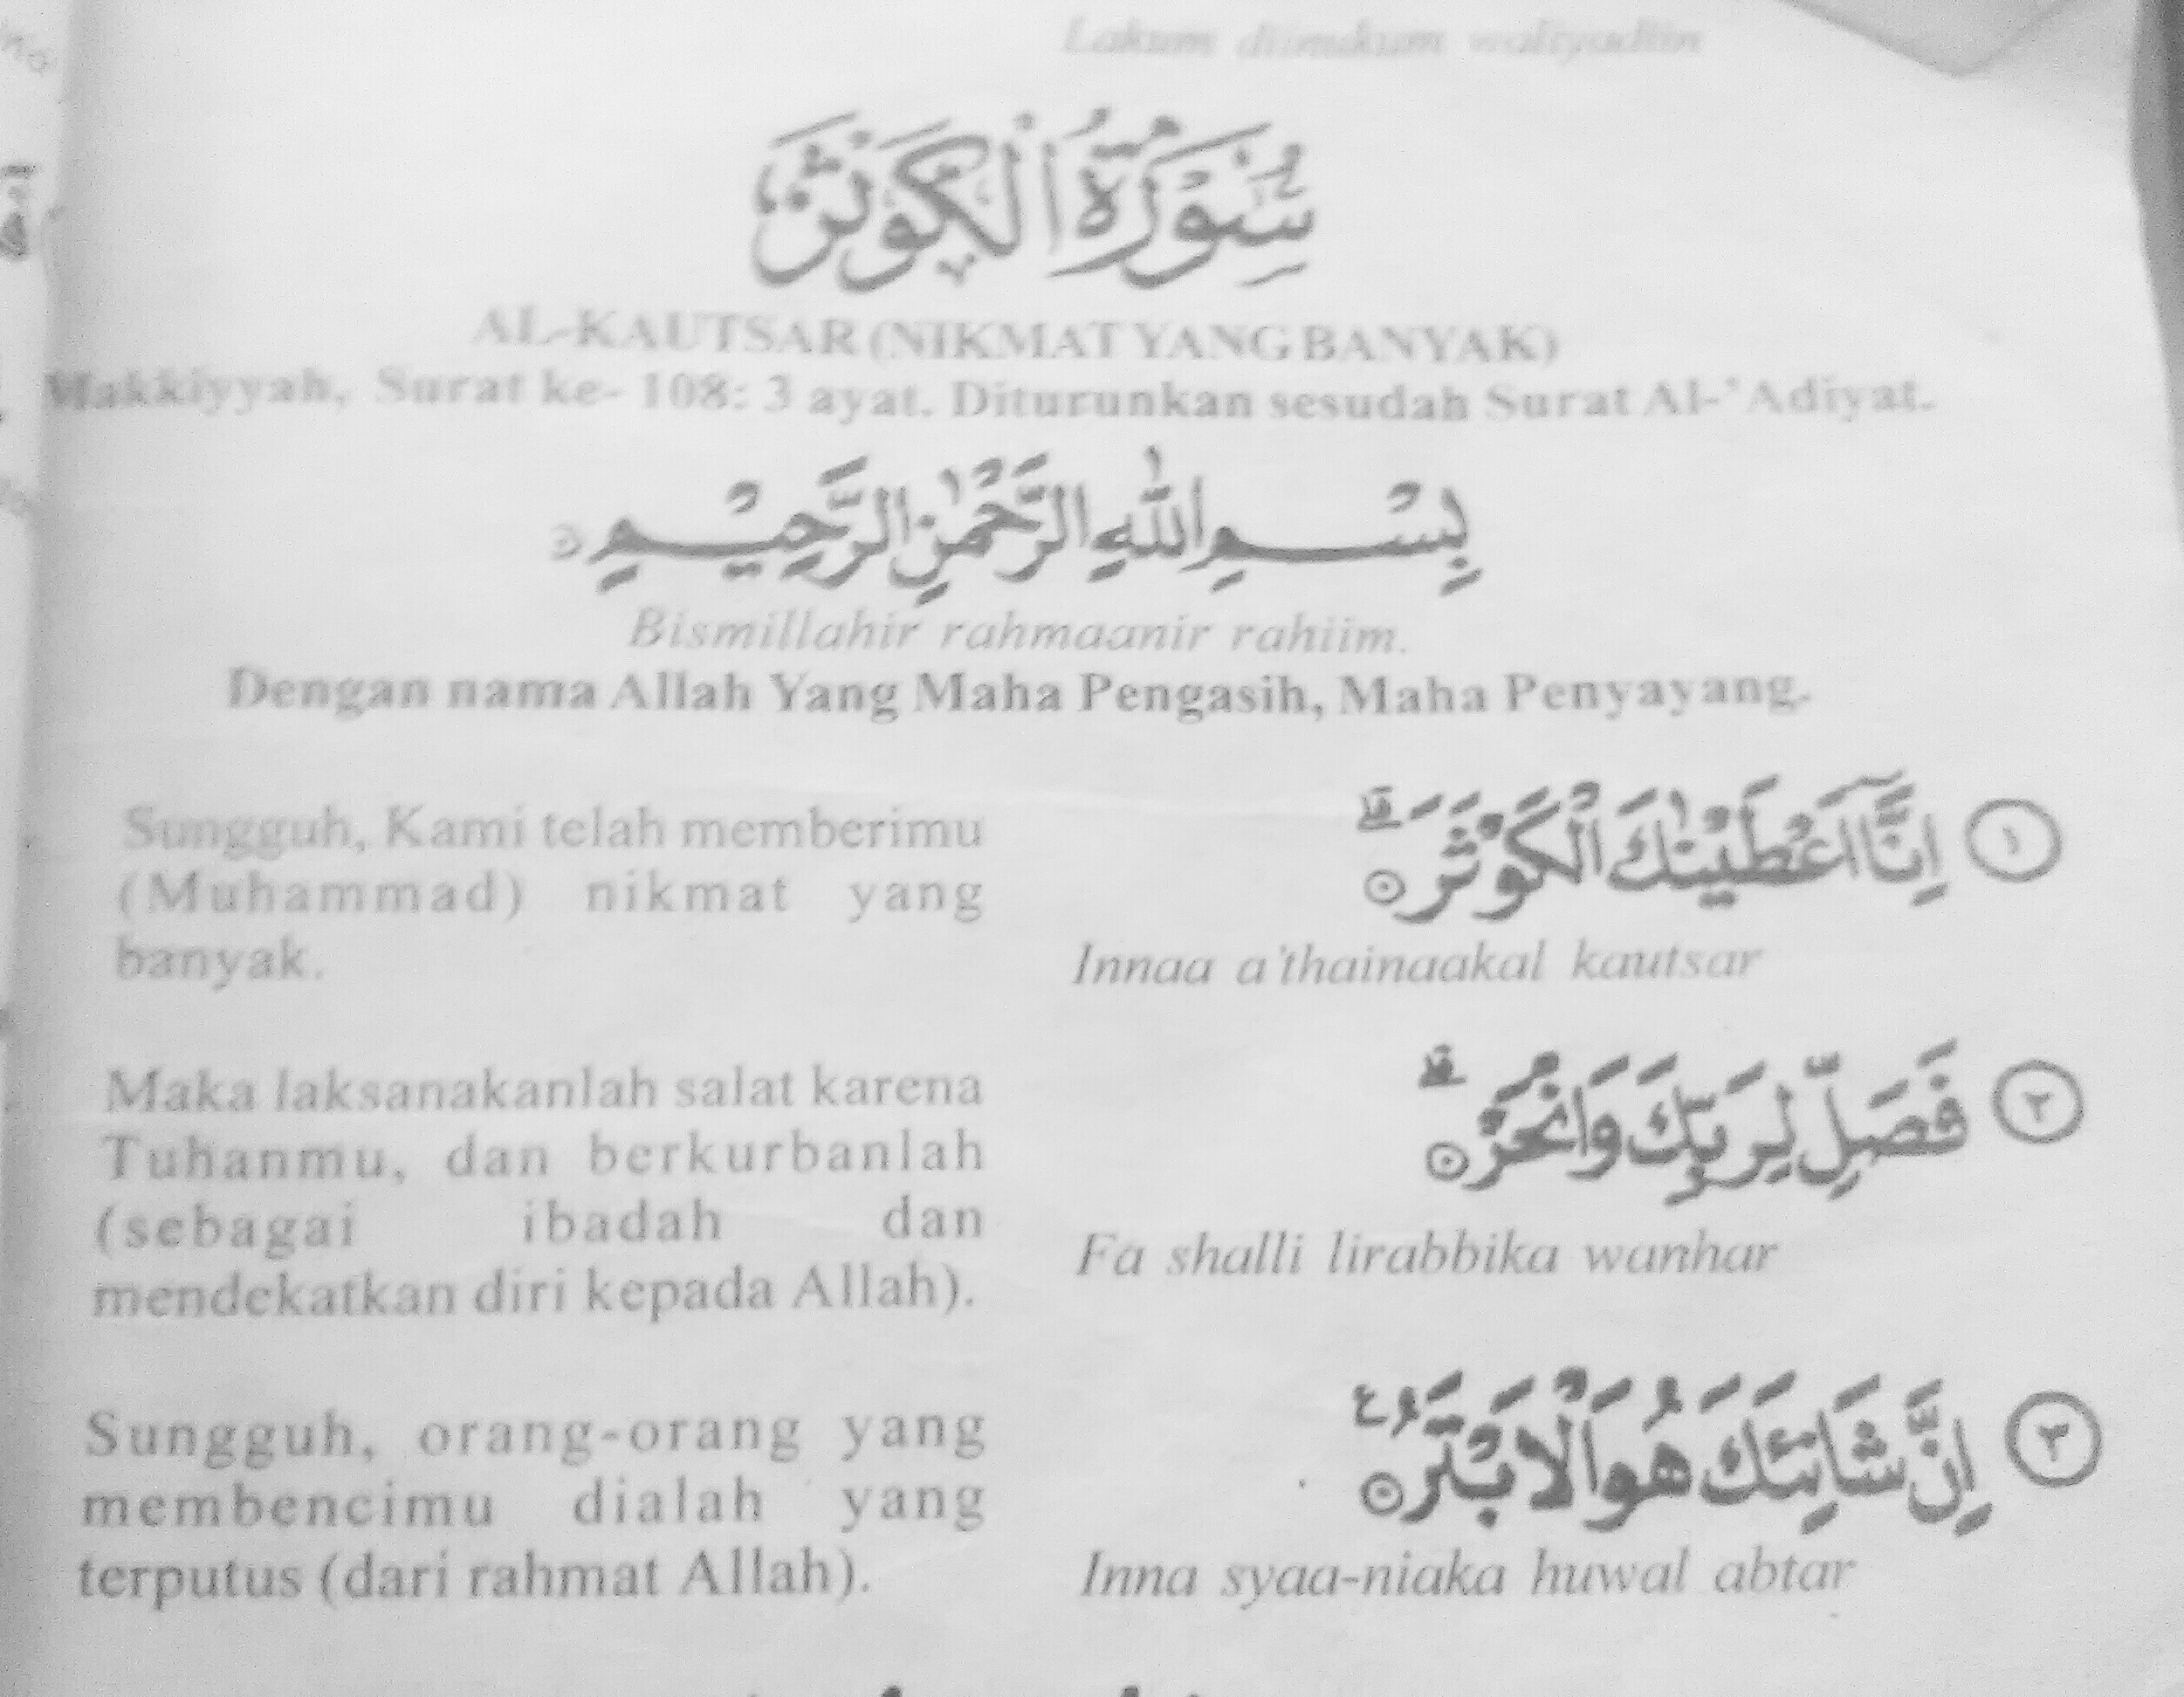 Lakum diinukum waliyadiin
سُوْرَةُ الْكَوْثَرِ
AL-KAUTSAR (NIKMAT YANG BANYAK)
Makkiyyah, Surat ke- 108: 3 ayat. Diturunkan sesudah Surat Al-'Adiyat.
بِسْمِ اللّٰهِ الرَّحْمٰنِ الرَّحِيْمِ
Bismillahir rahmaanir rahiim.
Dengan nama Allah Yang Maha Pengasih, Maha Penyayang.
١ اِنَّآ اَعْطَيْنٰكَ الْكَوْثَرَۗ
Innaa a'thainaakal kautsar
Sungguh, Kami telah memberimu
(Muhammad) nikmat yang
banyak.
٢ فَصَلِّ لِرَبِّكَ وَانْحَرْۗ
Fa shalli lirabbika wanhar
Maka laksanakanlah salat karena
Tuhanmu, dan berkurbanlah
(sebagai ibadah dan
mendekatkan diri kepada Allah).
٣ اِنَّ شَانِئَكَ هُوَ الْاَبْتَرُ ࣖ
Inna syaa-niaka huwal abtar
Sungguh, orang-orang yang
membencimu dialah yang
terputus (dari rahmat Allah).